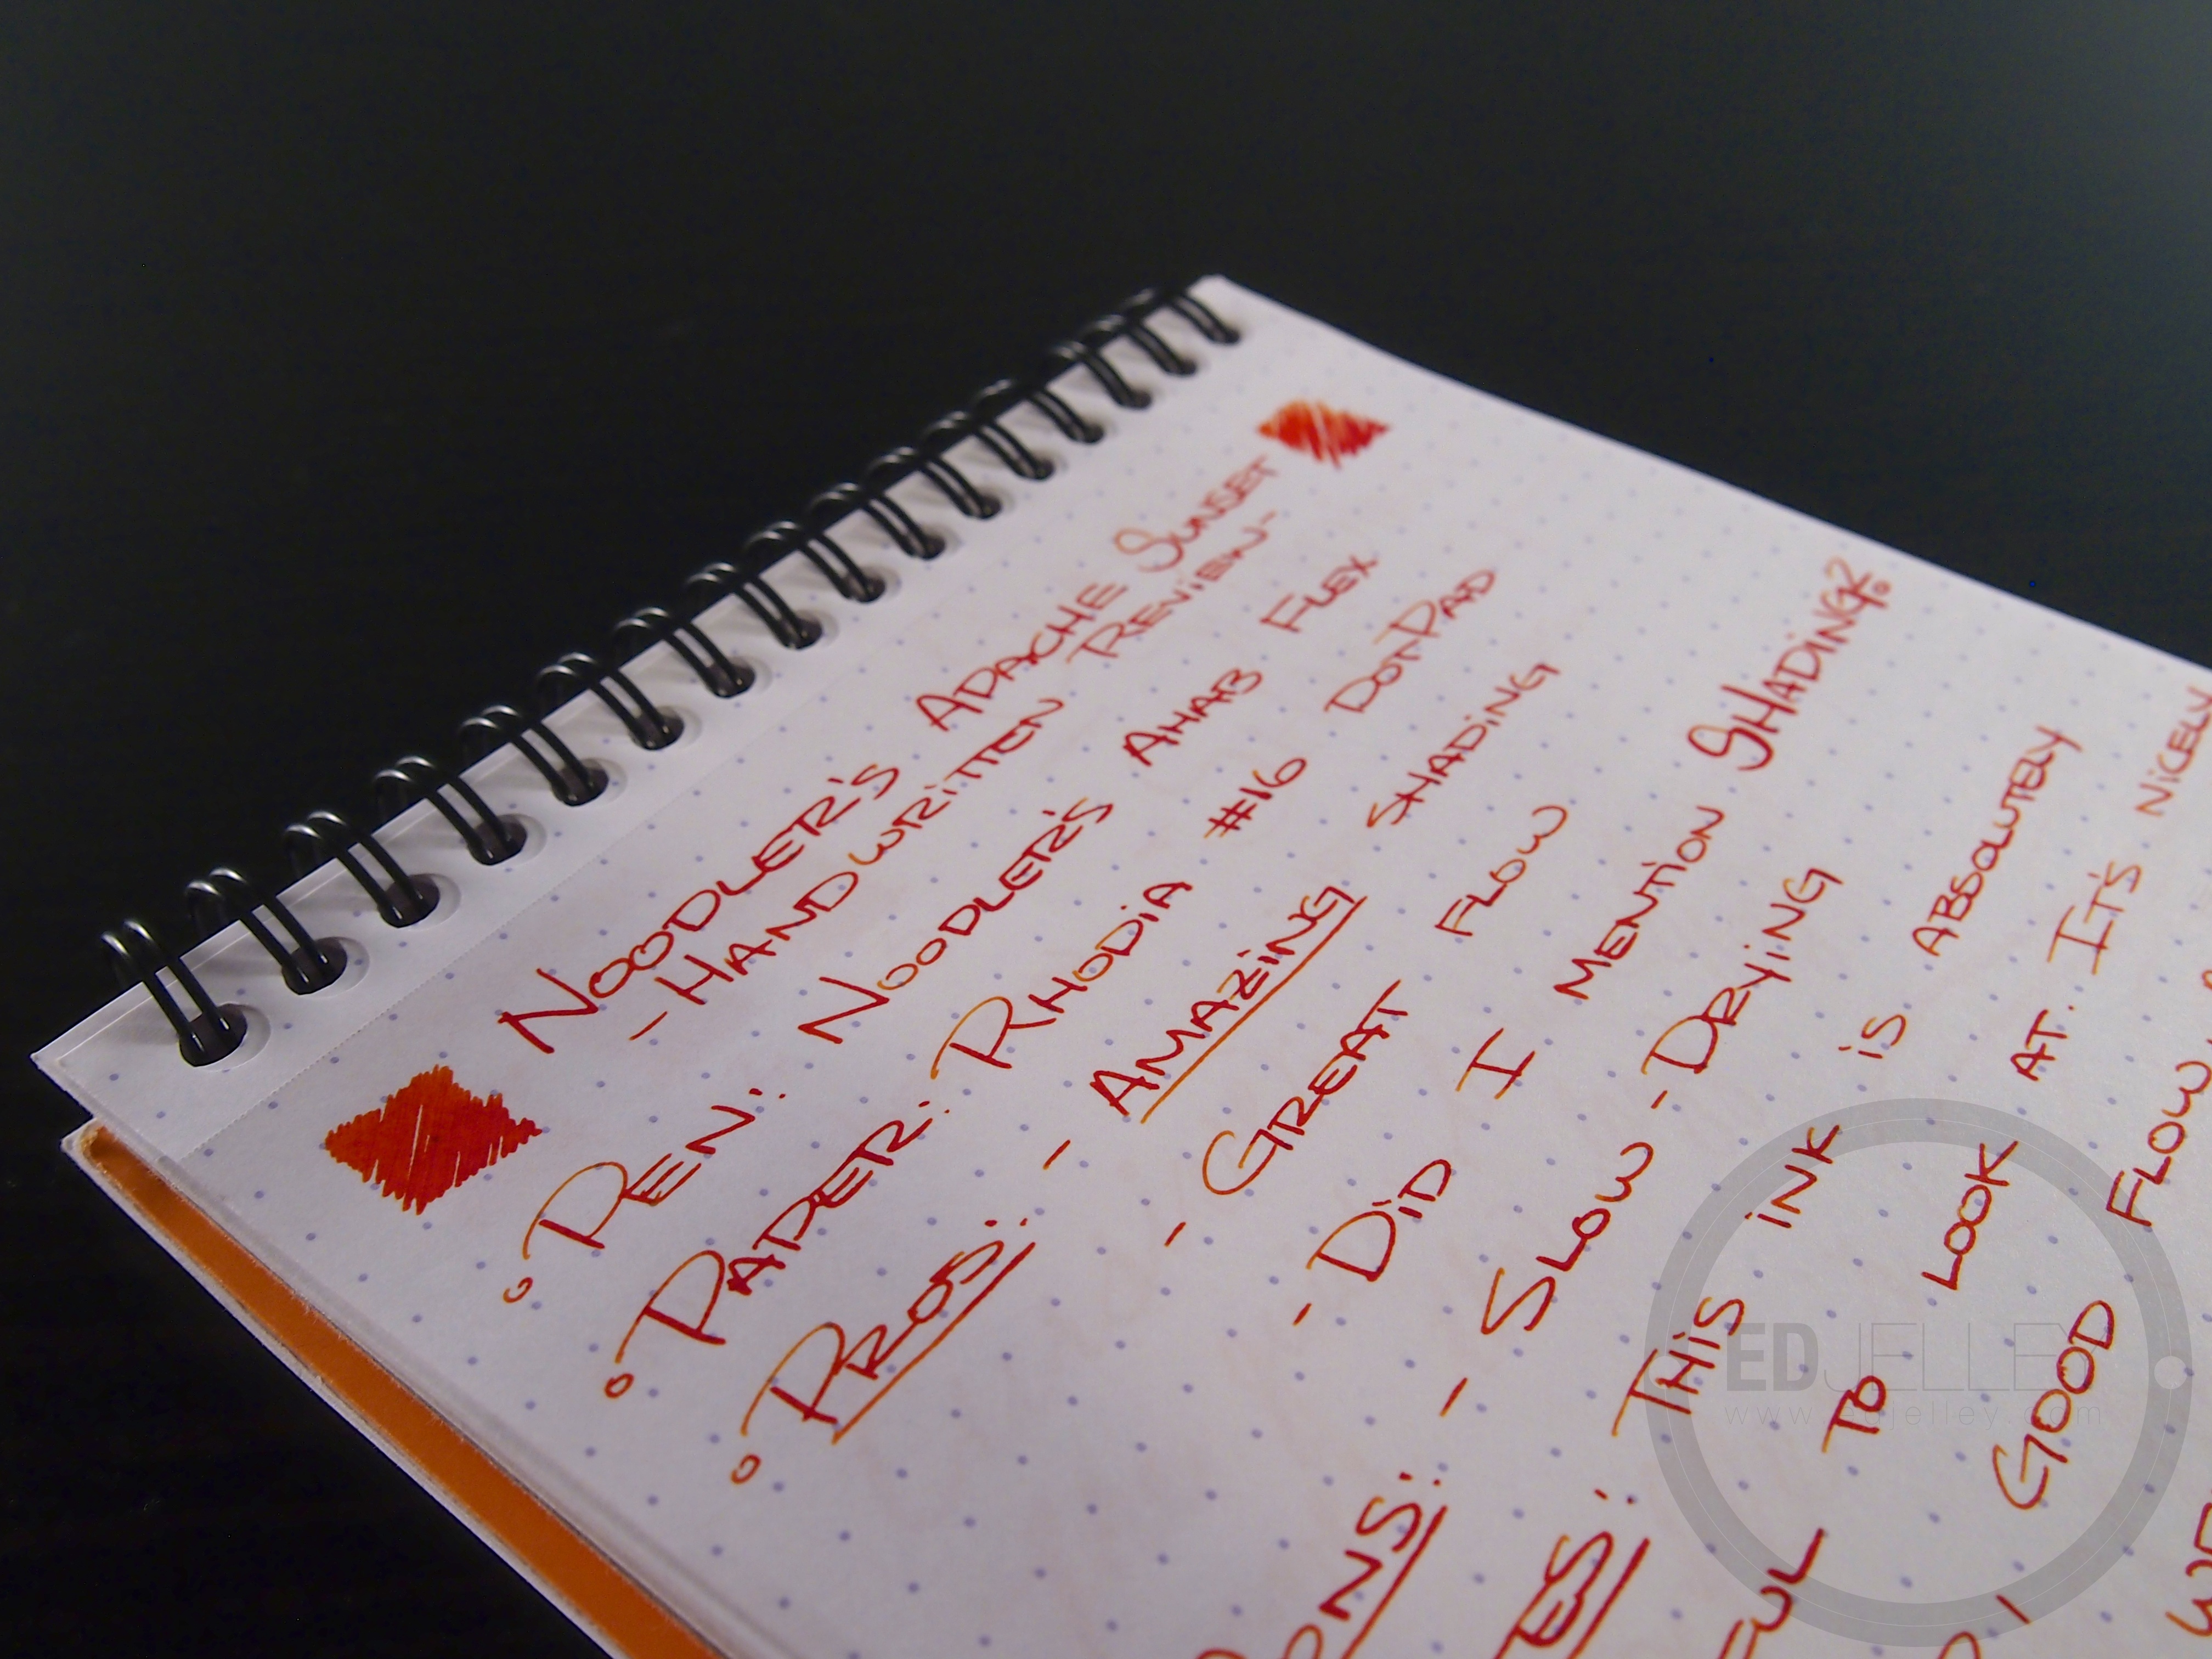 Noodler's Apache Sunset
- Handwritten Review -
° Pen: Noodler's Ahab Flex
° Paper: Rhodia #16 DotPad
° Pros: - Amazing Shading
- Great Flow
- Did I Mention Shading?
- Slow - Drying
This ink is absolutely
to look at. It's nicely
Good Flow,
EDJELLEY
www.edjelley.com